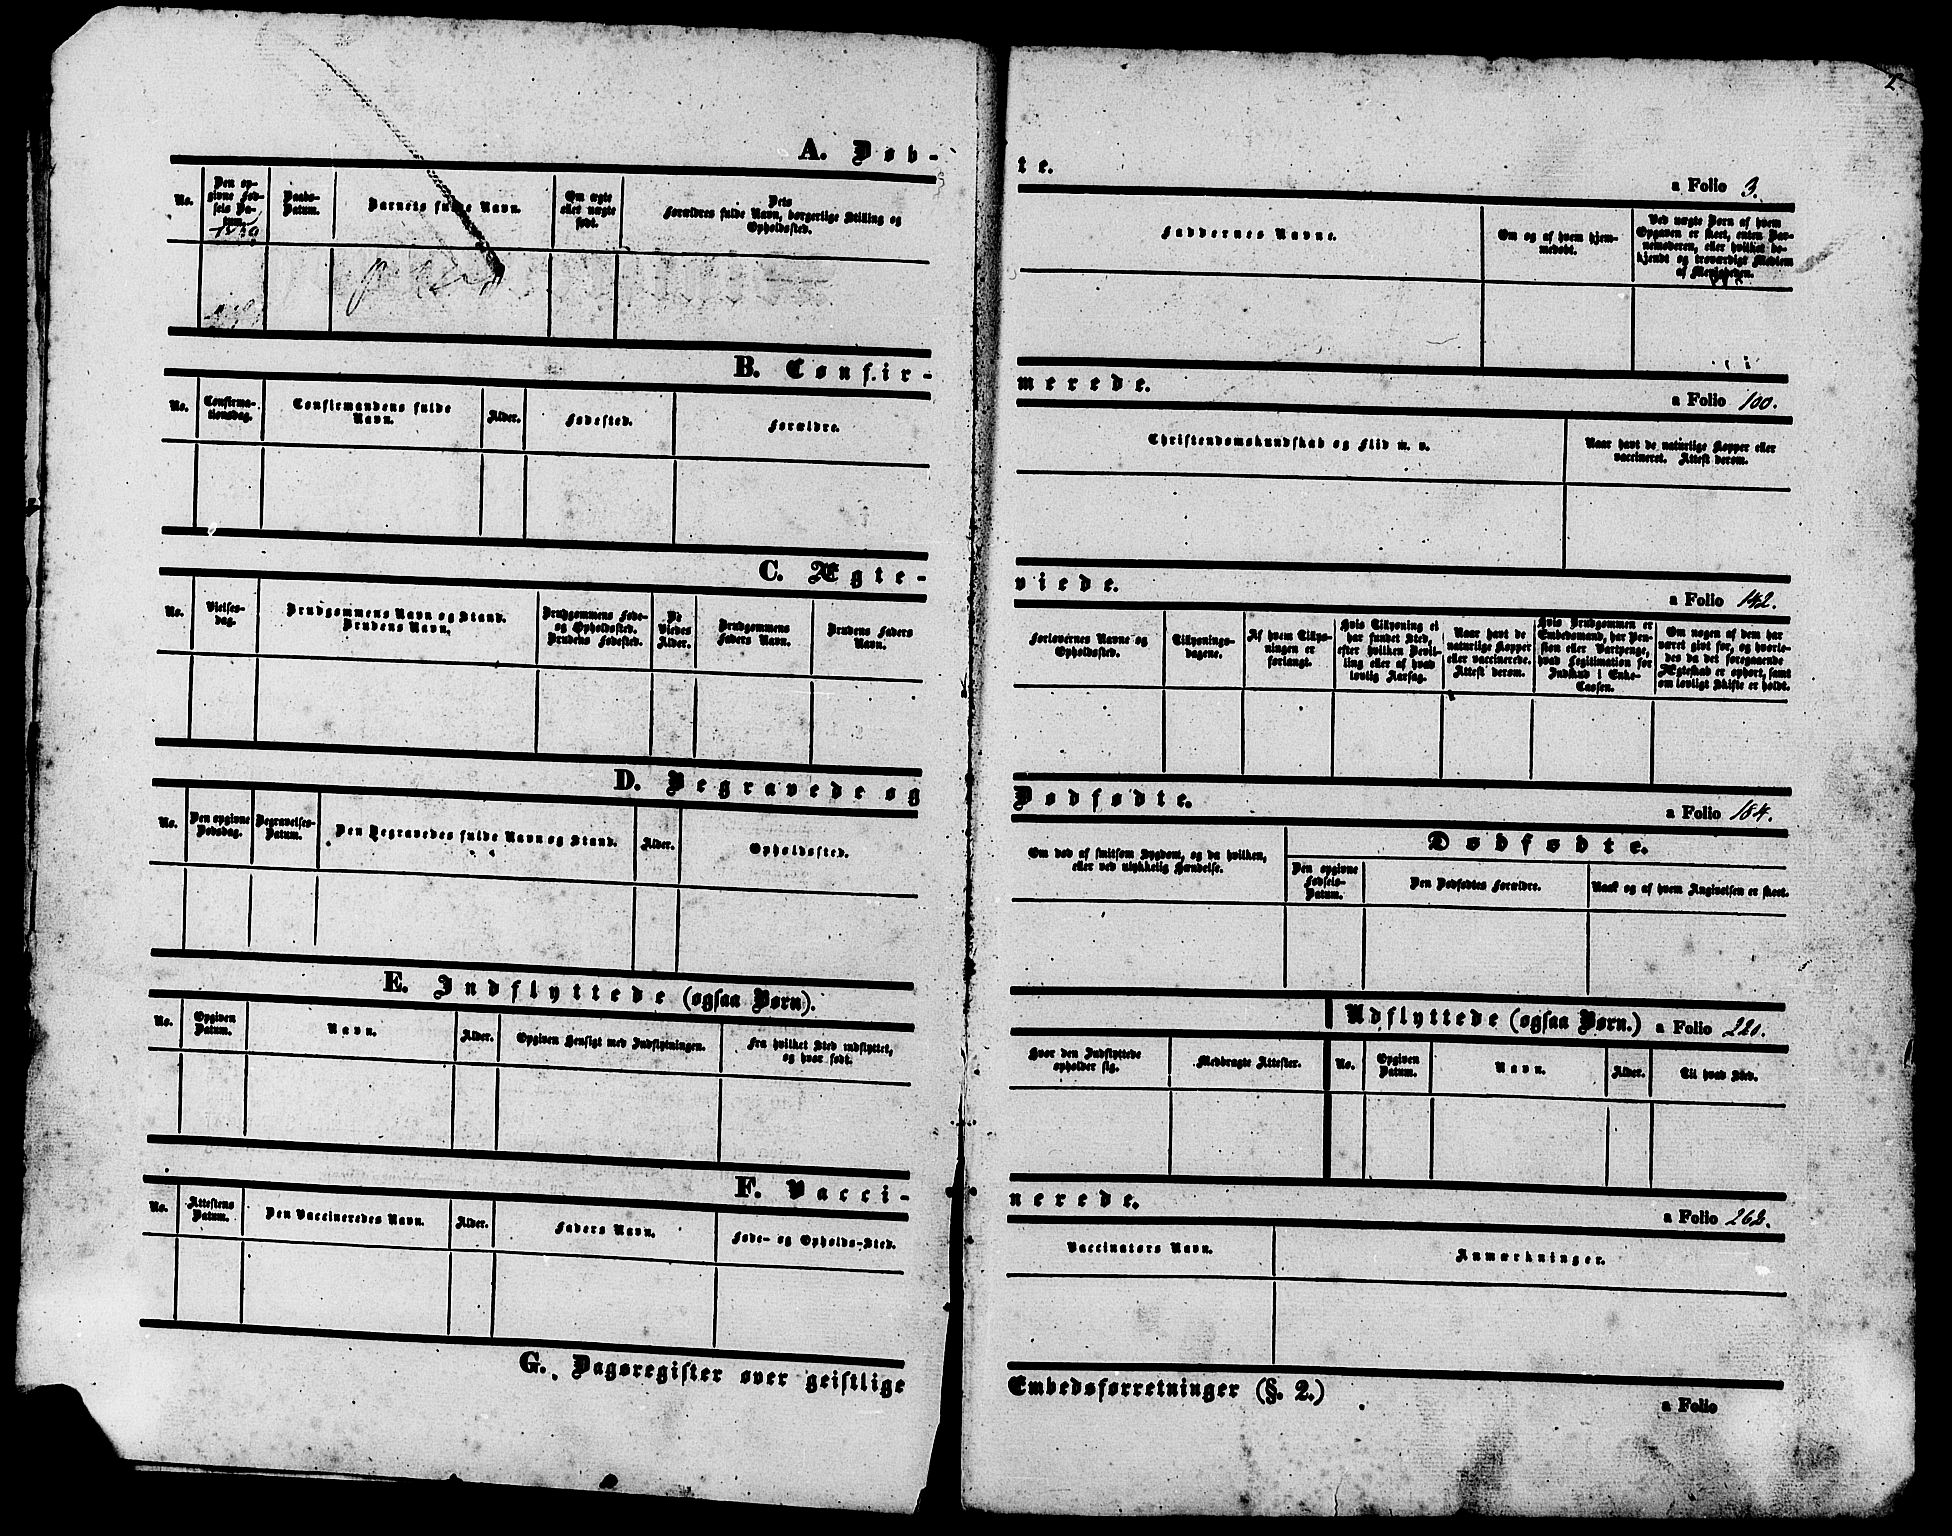 2.
A. Døb-
te.
a Folio 3.
No.
Den op-
givne Fød-
sels Da-
tum.
Daabs-
Datum.
Barnets fulde Navn.
Om ægte
eller uægte
født.
Dets
Forældres fulde Navn, borgerlige Stilling og
Opholdssted.
Faddernes Navne.
Om og af hvem hjem-
medøbt.
Ved uægte Børn af hvem
Opgaven er skeet, enten Bar-
nemoderen, eller hvilket be-
kjendt og troværdigt Medlem
af Menigheden.
B. Confir-
merede.
a Folio 100.
No.
Confirma-
tionsdag.
Confirmandens fulde
Navn.
Alder.
Fødested.
Forældre.
Christendomskundskab og Flid m. v.
Naar havt de naturlige Kopper eller
vaccineret. Attest derom.
C. Ægte-
viede.
a Folio 142.
No.
Vielses-
dag.
Brudgommens Navn og Stand.
Brudens Navn.
Brudgommens Føde-
og Opholdssted.
Brudens Fødested.
De
Viedes
Alder.
Brudgommens
Faders Navn.
Brudens Faders
Navn.
Forlovernes Navne og
Opholdssted.
Tillysnings-
dagene.
Af hvem Tillys-
ningen er
forlangt.
Hvis Tillysning ei
har fundet Sted,
efter hvilken Bevil-
ling eller af hvad
lovlig Aarsag.
Naar havt de
naturlige Kopper
eller vaccinerede.
Attest derom.
Hvis Brudgommen er
Embedsmand, har Pen-
sion eller Vartpenge,
hvad Legitimation for
Indskud i Enke-
Cassen.
Om nogen af dem har
været givt før, og hvorle-
des da det foregaaende
Ægteskab er ophørt, samt
om lovligt Skifte er holdt.
D. Begravede og
Dødfødte.
a Folio 184.
No.
Den opgivne
Dødsdag.
Begravelses-
Datum.
Den Begravedes fulde Navn og Stand.
Alder.
Opholdssted.
Om død af smitsom Sygdom, og da hvilken,
eller ved ulykkelig Hændelse.
Dødfødte.
Den opgivne
Fødsels-
Datum.
Den Dødfødtes Forældre.
Naar og af hvem Angivelsen er skeet.
E. Indflyttede (ogsaa Børn).
Udflyttede (ogsaa Børn.) a Folio 220.
No.
Opgiven
Datum.
Navn.
Alder.
Opgiven Hensigt med Indflytningen.
Fra hvilket Sted indflyttet,
og hvor født.
Hvor den Indflyttede
opholder sig.
Medbragte Attester.
No.
Opgiven
Datum.
Navn.
Alder.
Til hvad Sted.
F. Vacci-
nerede.
a Folio 262.
No.
Attestens
Datum.
Den Vaccineredes Navn.
Alder.
Faders Navn.
Føde- og Opholds-Sted.
Vaccinators Navn.
Anmærkninger.
G. Dagsregister over geistlige
Embedsforretninger (§. 2.)
a Folio